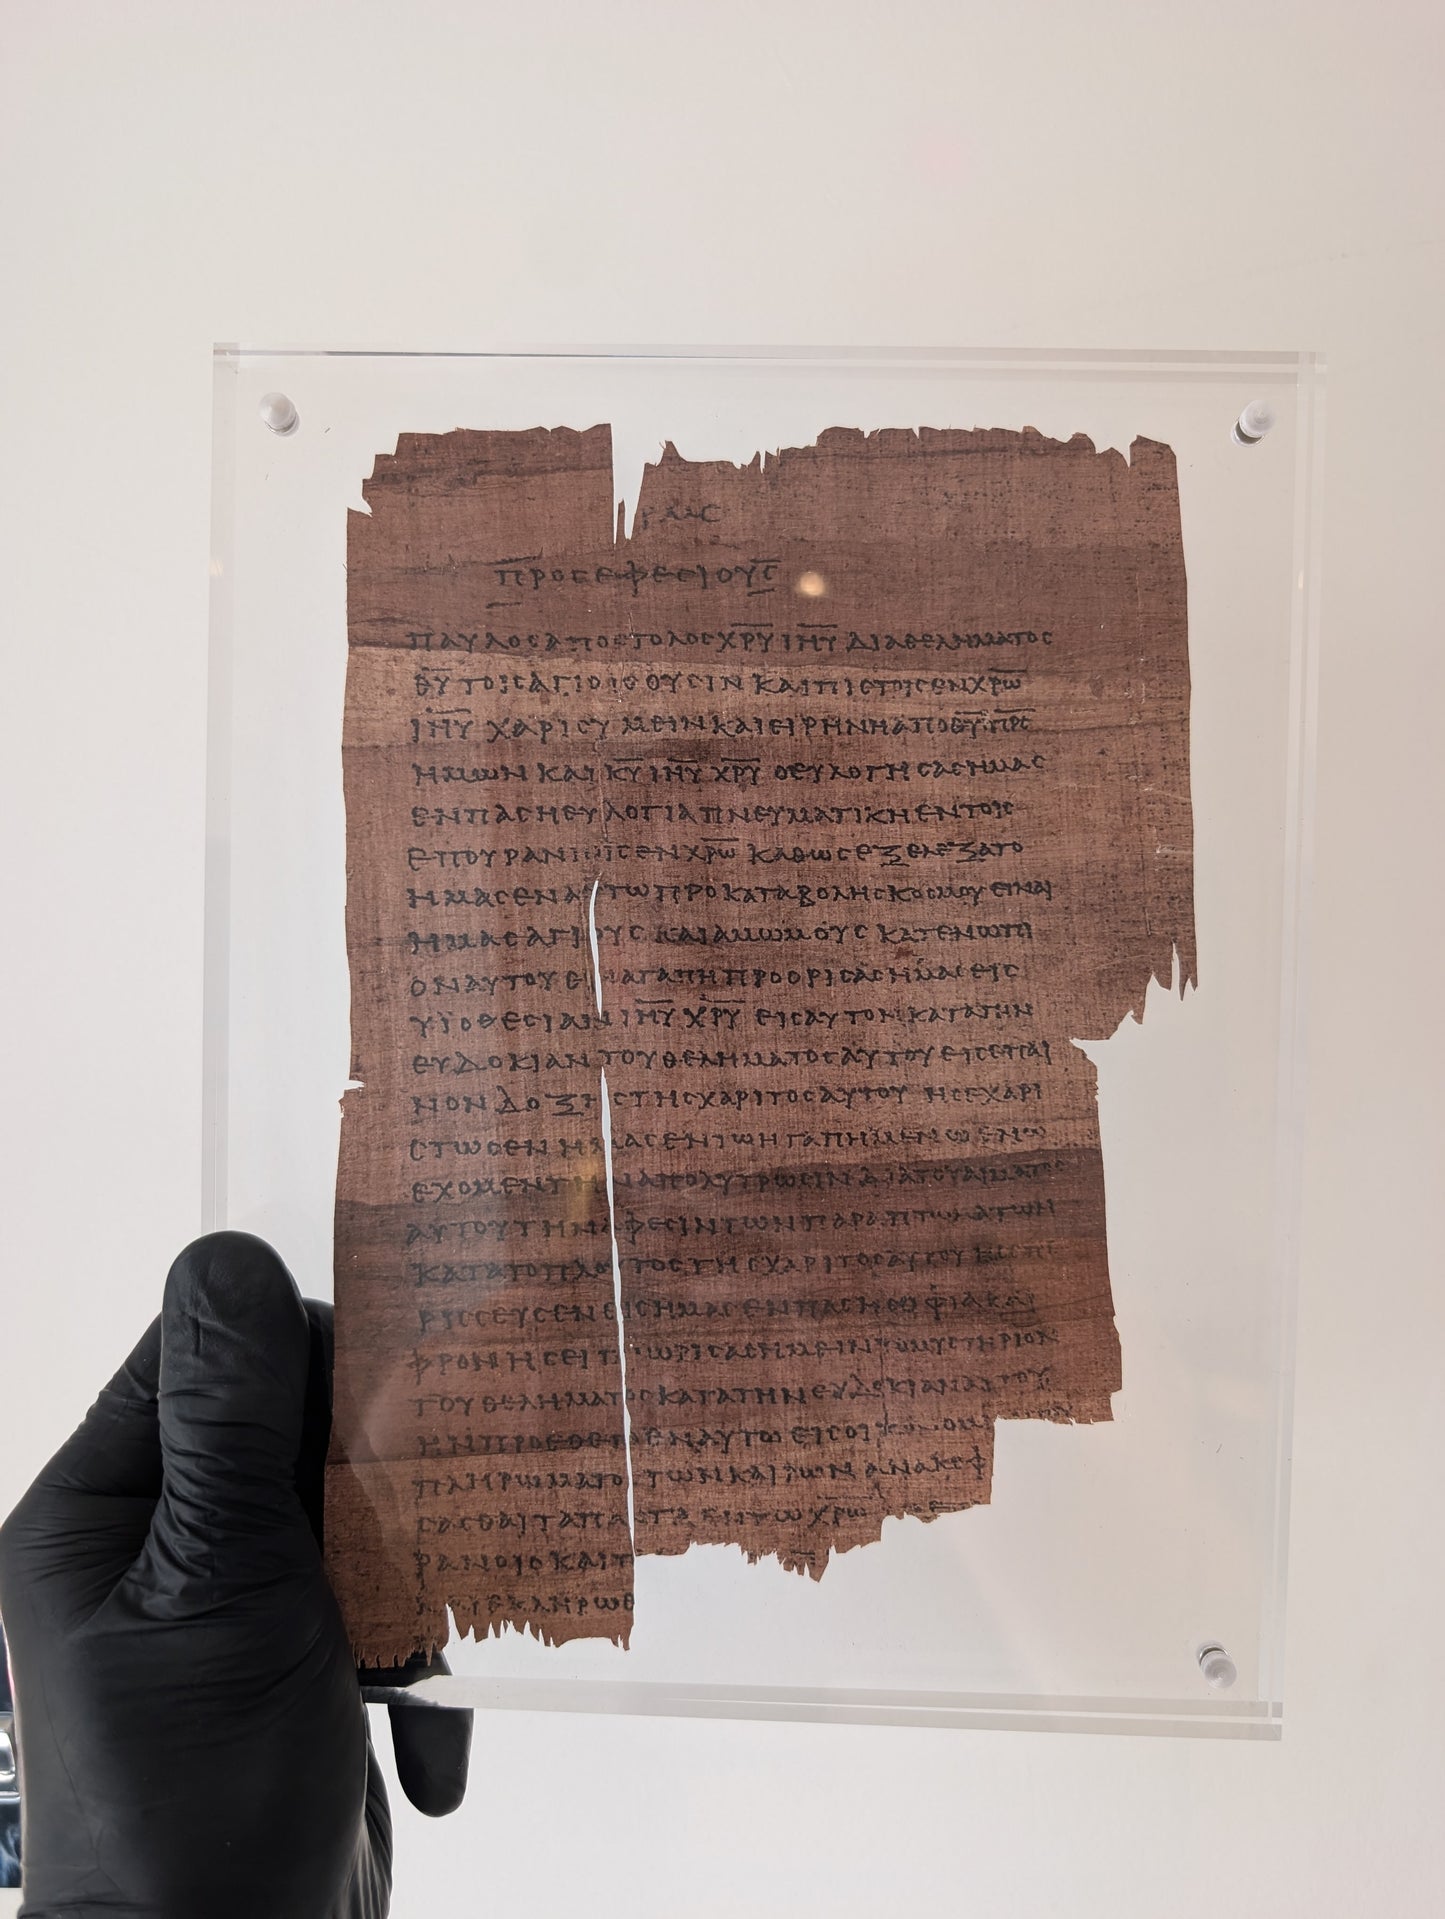 ΠΡΟСΕΦΕСΙΟΥС
ΠΑΥΛΟСΑΠΟСΤΟΛΟСΧΡΥ ΙΗΥ ΔΙΑΘΕΛΗΜΑΤΟС
ΘΥ ΤΟΙСΑΓΙΟΙС ΟΥСΙΝ ΚΑΙΠΙСΤΟΙСΕΝΧΡΩ
ΙΗΥ ΧΑΡΙСΥΜΕΙΝΚΑΙΕΙΡΗΝΗΑΠΟΘΥ ΠΡС
ΗΜΩΝ ΚΑΙ ΚΥ ΙΗΥ ΧΡΥ ΟΕΥΛΟΓΗСΑСΗΜΑС
ΕΝΠΑСΗΕΥΛΟΓΙΑΠΝΕΥΜΑΤΙΚΗΕΝΤΟΙС
ΕΠΟΥΡΑΝΙΟΙСΕΝΧΡΩ ΚΑΘΩСΕΞΕΛΕΞΑΤΟ
ΗΜΑСΕΝΑΥΤΩΠΡΟΚΑΤΑΒΟΛΗСΚΟСΜΟΥΕΙΝΑΙ
ΗΜΑСΑΓΙΟΥС ΚΑΙΑΜΩΜΟΥС ΚΑΤΕΝΩΠΙ
ΟΝΑΥΤΟΥΕΝΑΓΑΠΗΠΡΟΟΡΙСΑСΗΜΑСΕΙС
ΥΙΟΘΕСΙΑΝ ΙΗΥ ΧΡΥ ΕΙСΑΥΤΟΝΚΑΤΑΤΗΝ
ΕΥΔΟΚΙΑΝΤΟΥΘΕΛΗΜΑΤΟСΑΥΤΟΥΕΙСΕΠΑΙ
ΝΟΝΔΟΞΗСΤΗСΧΑΡΙΤΟСΑΥΤΟΥ ΗСΕΧΑΡΙ
СΤΩСΕΝΗΜΑСΕΝΤΩΗΓΑΠΗΜΕΝΩΕΝΩ
ΕΧΟΜΕΝΤΗΝΑΠΟΛΥΤΡΩСΙΝΔΙΑΤΟΥΑΙΜΑΤΟС
ΑΥΤΟΥΤΗΝΑΦΕСΙΝΤΩΝΠΑΡΑΠΤΩΜΑΤΩΝ
ΚΑΤΑΤΟΠΛΟΥΤΟСΤΗСΧΑΡΙΤΟСΑΥΤΟΥ
ΡΙССΕΥСΕΝΕΙСΗΜΑСΕΝΠΑСΗСΟΦΙΑΚΑΙ
ΦΡΟΝΗСΕΙΓΝΩΡΙСΑСΗΜΕΙΝΤΟΜΥСΤΗΡΙΟΝ
ΤΟΥΘΕΛΗΜΑΤΟСΚΑΤΑΤΗΝΕΥΔΟΚΙΑΝΑΥΤΟΥ
ΗΝΠΡΟΕΘΕΤΟΕΝΑΥΤΩΕΙСΟΙΚΟΝΟΜ
ΠΛΗΡΩΜΑΤΟСΤΩΝΚΑΙΡΩΝ ΑΝΑΚΕΦ
СΑСΘΑΙΤΑΠΑΝΤΑΕΝΤΩΧΡΩ
ΡΑΝΟΙС ΚΑΙΤ
ΕΚΛΗΡΩΘ